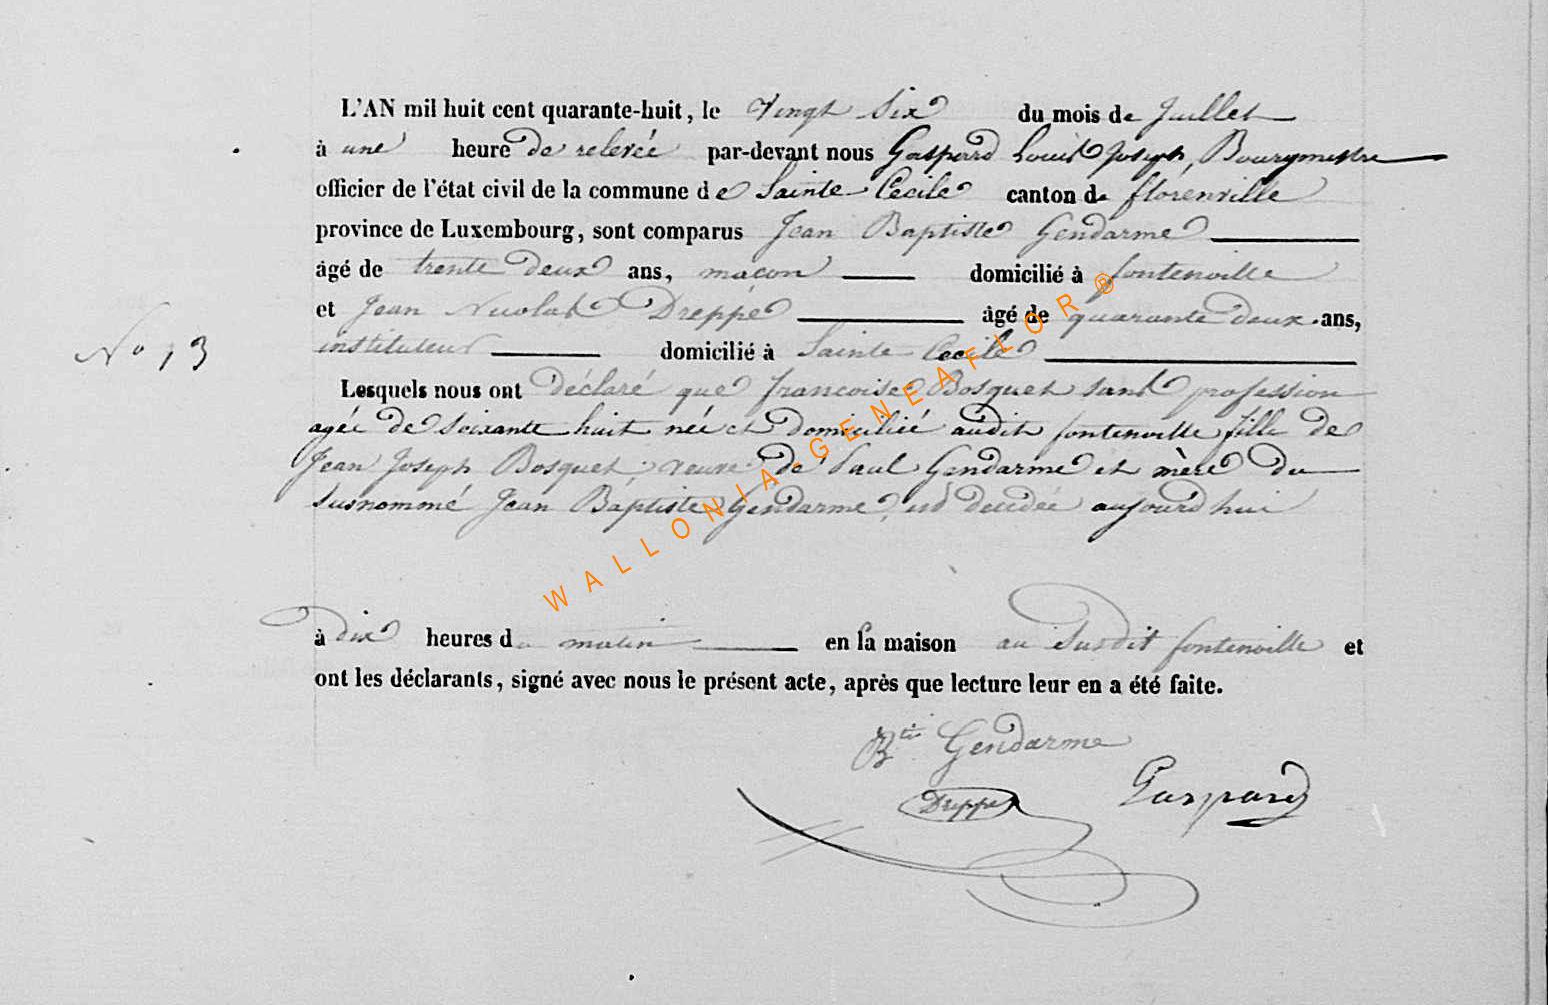 L'AN mil huit cent quarante-huit, le Vingt Six du mois de Juillet
à une heure de relevée par-devant nous Gaspard Louis Joseph, Bourgmestre
officier de l'état civil de la commune de Sainte Cecile canton de florenville
province de Luxembourg, sont comparus Jean Baptiste Gendarme
âgé de trente deux ans, macon domicilié à fontenoille
et Jean Nicolas Dreppe âgé de quarante deux ans,
N° 13
instituteur domicilié à Sainte Cecile
Lesquels nous ont déclaré que francoise Bosquet sans profession
agée de Soixante huit née et domiciliée audit fontenoille fille de
Jean Joseph Bosquet, veuve de Paul Gendarme et mère du
Susnommé Jean Baptiste Gendarme, est decedée aujourd'hui
à dix heures du matin en la maison au Susdit fontenoille et
ont les déclarants, signé avec nous le présent acte, après que lecture leur en a été faite.
Bte Gendarme
Dreppe Gaspard
WALLONIA.GENEAFLOR®